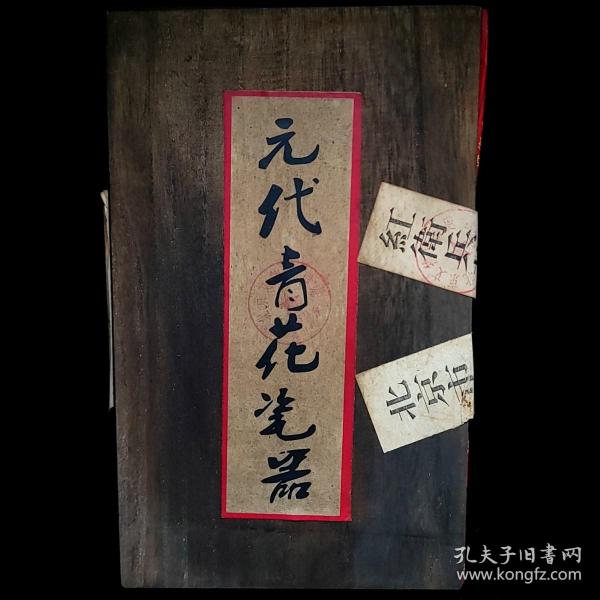 元代青花瓷器
紅衛兵
北京市
孔夫子旧書网
www.kongfz.com